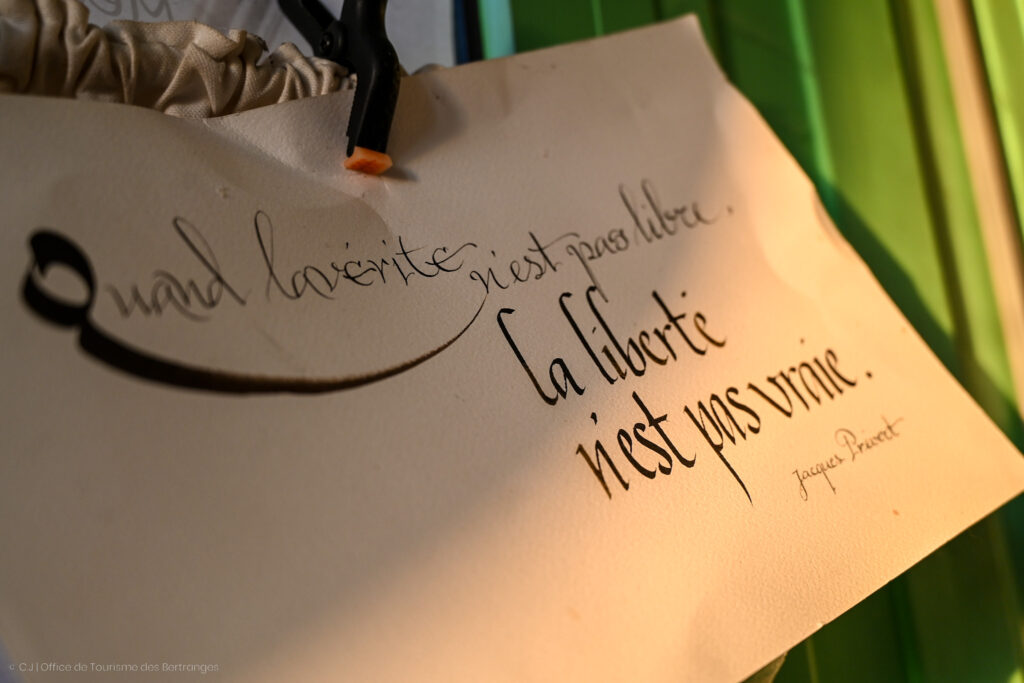 Quand la vérité n'est pas libre.
la liberté
n'est pas vraie.
Jacques Prévert
© CJ | Office de Tourisme des Bertranges